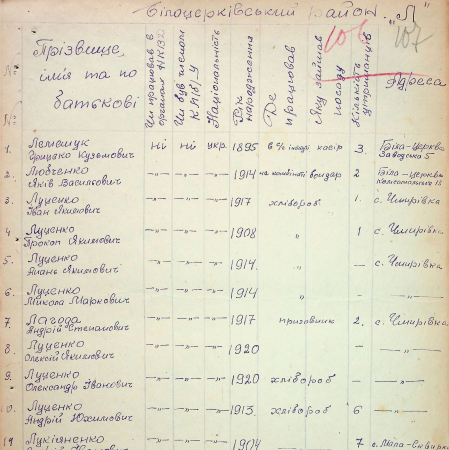 Білоцерківський район "Л"
106 107
№ Прізвище, імія та по батькові
Чи працював в органах НКВС
Чи був членом КП(б)У
Національність
Рік народження
Де працював
Яку займав посаду
Кількість утриманців
Адреса
№
1. Лемещук Грицько Кузьмович ні ні укр. 1895 касір 3. Біла-Церква Заводська 5
2. Любченко Яків Василович -"- -"- -"- 1914 2 Біла-Церква
3. Луценко Іван Якимович -"- -"- -"- 1917 хлібороб 1. с. Чмирівка
4 Луценко Прокоп Якимович -"- -"- -"- 1908 " 1 с. Чмирівка
5. Луценко Якимович -"- -"- -"- 1914. " — с. Чмирівка
6. Луценко Микола Маркович -"- -"- -"- 1914 " - -"-
7. Лагода Андрій Степанович -"- -"- -"- 1917 призовник 2. с. Чмирівка
8. Луценко Олексій Якимович -"- -"- -"- 1920 - -"-
9. Луценко Олександр Іванович -"- -"- -"- 1920 хлібороб - -"-
10. Луценко Андрій Юхимович -"- -"- -"- 1913. хлібороб 6 -"-
Лукіяненко -"- -"- -"- 1904 " 7